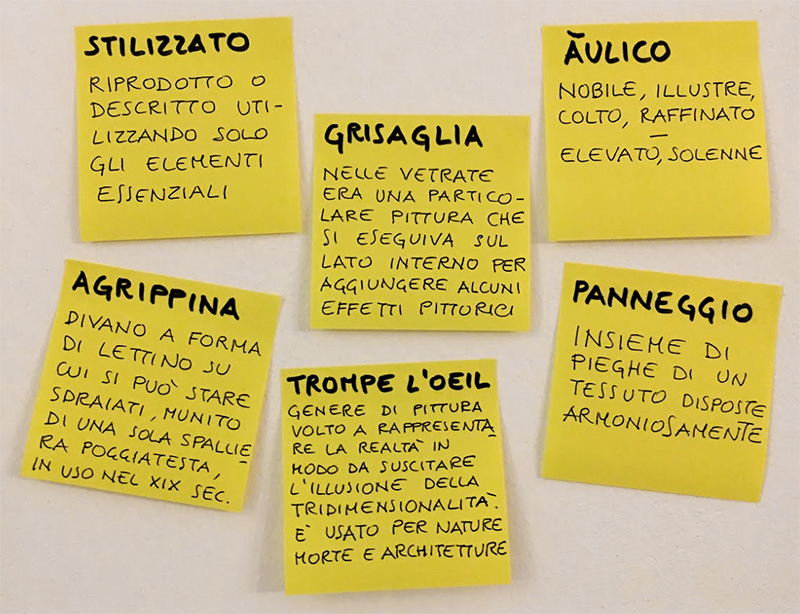 STILIZZATO
RIPRODOTTO O
DESCRITTO UTI-
LIZZANDO SOLO
GLI ELEMENTI
ESSENZIALI
GRISAGLIA
NELLE VETRATE
ERA UNA PARTICO-
LARE PITTURA CHE
SI ESEGUIVA SUL
LATO INTERNO PER
AGGIUNGERE ALCUNI
EFFETTI PITTORICI
ÀULICO
NOBILE, ILLUSTRE,
COLTO, RAFFINATO
—
ELEVATO, SOLENNE
AGRIPPINA
DIVANO A FORMA
DI LETTINO SU
CUI SI PUÒ STARE
SDRAIATI, MUNITO
DI UNA SOLA SPALLIE-
RA POGGIATESTA,
IN USO NEL XIX SEC.
TROMPE L'OEIL
GENERE DI PITTURA
VOLTO A RAPPRESENTA-
RE LA REALTÀ IN
MODO DA SUSCITARE
L'ILLUSIONE DELLA
TRIDIMENSIONALITÀ.
E' USATO PER NATURE
MORTE E ARCHITETTURE
PANNEGGIO
INSIEME DI
PIEGHE DI UN
TESSUTO DISPOSTE
ARMONIOSAMENTE